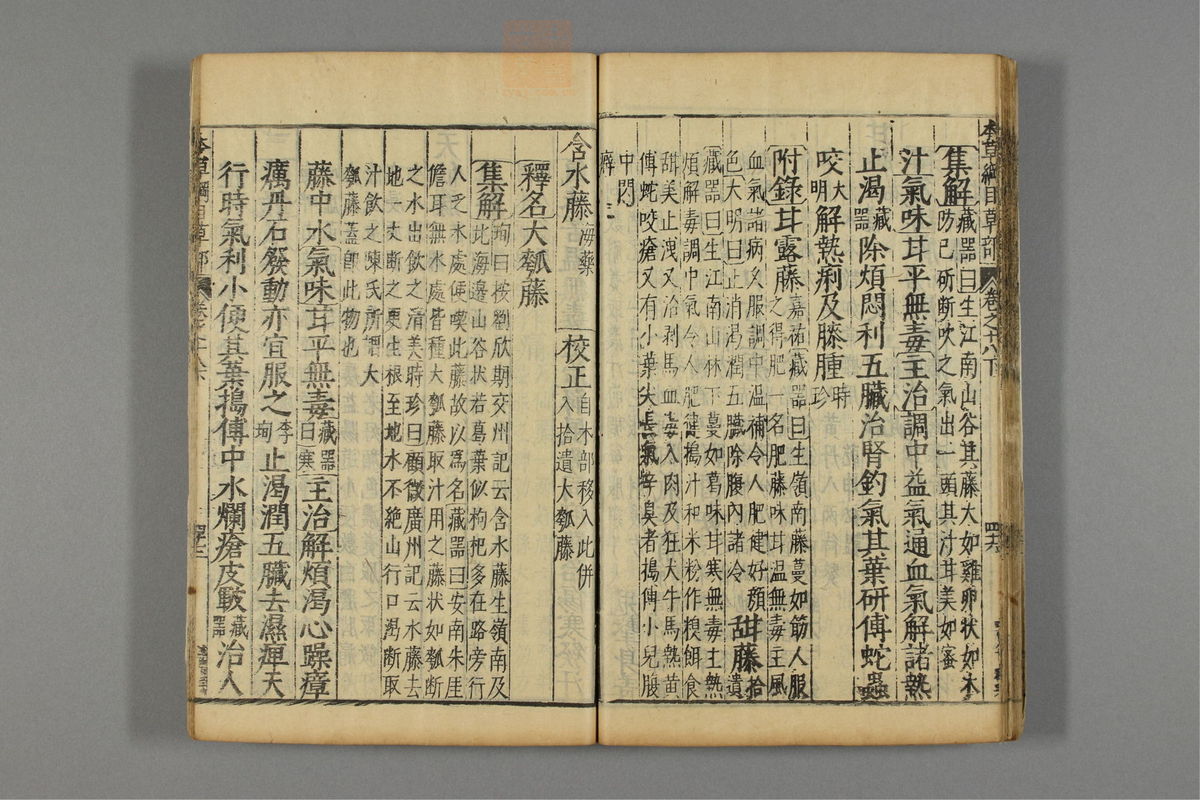 本草綱目草部 卷之十八下
集解藏器曰生江南山谷其藤大如雞卵狀如木
防己斫斷吹之氣出一頭其汁甘美如蜜
汁氣味甘平無毒主治調中益氣通血氣解諸熱
止渴藏器除煩悶利五臟治腎釣氣其葉研傅蛇蟲
咬大明解熱痢及膝腫時珍
附錄甘露藤嘉祐藏器曰生嶺南藤蔓如筯人服
之得肥一名肥藤味甘溫無毒主風
血氣諸病久服調中溫補令人肥健好顏
色大明曰止消渴潤五臟除腹內諸冷
甜藤拾遺
藏器曰生江南山林下蔓如葛味甘寒無毒主熱
煩解毒調中氣令人肥健搗汁和米粉作糗餌食
甜美止洩又治剝馬血毒入肉及狂犬牛馬熱黃
傅蛇咬瘡又有小葉尖長氣辛臭者搗傅小兒腹
中閃
癖
含水藤海藥 校正自木部移入此併
入拾遺大瓠藤
釋名大瓠藤
集解珣曰按劉欣期交州記云含水藤生嶺南及
此海邊山谷狀若葛葉似枸杞多在路旁行
人乏水處便喫此藤故以爲名藏器曰安南朱厓
儋耳無水處皆種大瓠藤取汁用之藤狀如瓠斷
之水出飲之清美時珍曰顧微廣州記云水藤去
地一丈斷之更生根至地水不絶山行口渴斷取
汁飲之陳氏所謂大
瓠藤蓋卽此物也
藤中水氣味甘平無毒藏器曰寒主治解煩渴心躁瘴
癘丹石發動亦宜服之李珣止渴潤五臟去濕痺天
行時氣利小便其葉搗傅中水爛瘡皮皸藏器治人
本草綱目草部